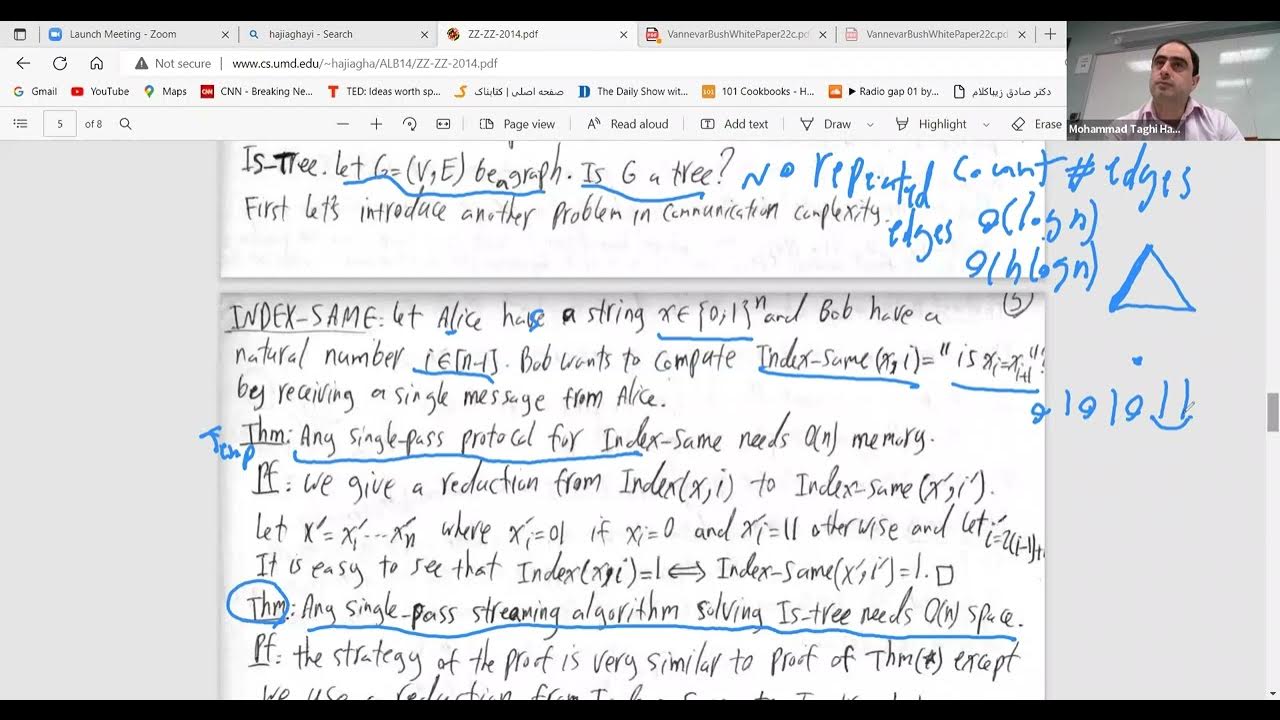 Launch Meeting - Zoom
hajiaghayi - Search
ZZ-ZZ-2014.pdf
VannevarBushWhitePaper22c.pd
VannevarBushWhitePaper22c.pd
Not secure | www.cs.umd.edu/~hajiagha/ALB14/ZZ-ZZ-2014.pdf
Gmail YouTube Maps CNN - Breaking Ne... TED: Ideas worth sp... صفحه اصلی | کتابناک The Daily Show wit... 101 Cookbooks - H... Radio gap 01 by... دکتر صادق زیباکلام
5 of 8 Page view Read aloud Add text Draw Highlight Erase
Mohammad Taghi Ha...
Is-Tree. Let G=(V,E) be a graph. Is G a tree?
First let's introduce another problem in communication complexity.
No repeated edges
Count # edges
O(log n)
O(n log n)
5
INDEX-SAME: Let Alice has a string x∈{0,1}ⁿ and Bob have a
natural number i∈[n-1]. Bob wants to compute Index-Same(x,i)="is xᵢ=xᵢ₊₁"?
by receiving a single message from Alice.
0 1 0 1 0 1 1
Thm: Any single-pass protocal for Index-Same needs Ω(n) memory.
Pf: we give a reduction from Index(x,i) to Index-Same(x',i').
Let x'=x'₁...x'ₙ where x'ᵢ=01 if xᵢ=0 and x'ᵢ=11 otherwise and let i'=2(i-1)+1
It is easy to see that Index(x,i)=1 ⟺ Index-Same(x',i')=1. □
Thm: Any single-pass streaming algorithm solving Is-tree needs Ω(n) space.
Pf: the strategy of the proof is very similar to proof of Thm(*) except